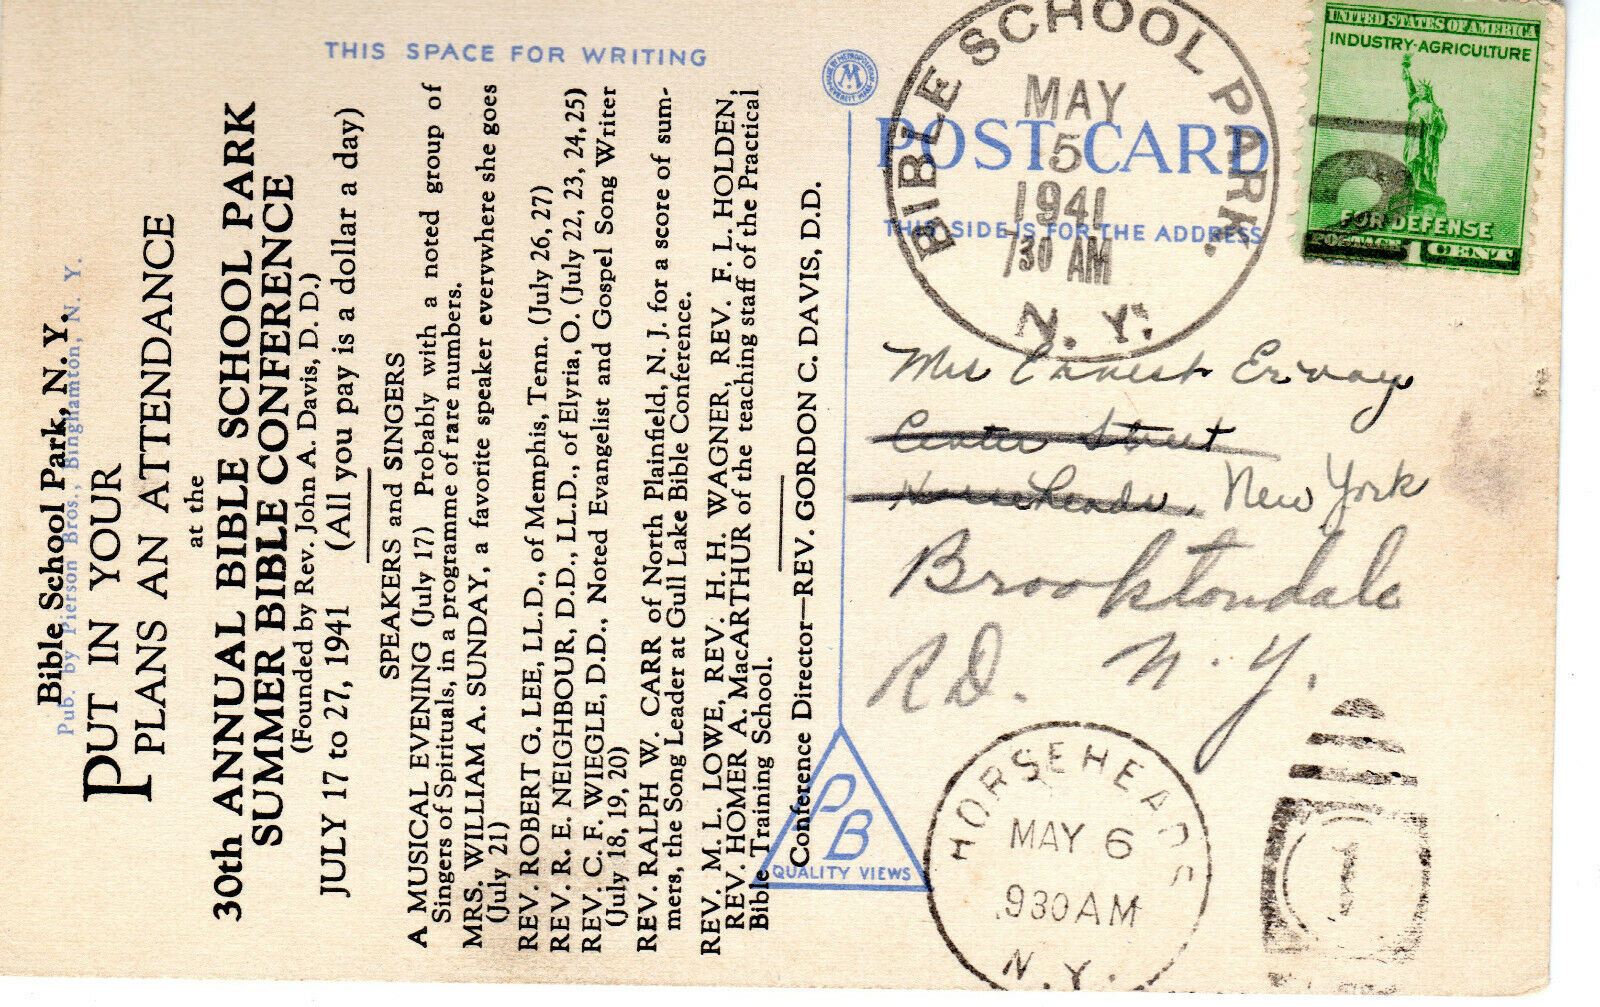 THIS SPACE FOR WRITING
Bible School Park, N. Y.
Pub. by Pierson Bros., Binghamton, N. Y.
PUT IN YOUR
PLANS AN ATTENDANCE
at the
30th ANNUAL BIBLE SCHOOL PARK
SUMMER BIBLE CONFERENCE
(Founded by Rev. John A. Davis, D. D.)
JULY 17 to 27, 1941 (All you pay is a dollar a day)
SPEAKERS and SINGERS
A MUSICAL EVENING (July 17) Probably with a noted group of
Singers of Spirituals, in a programme of rare numbers.
MRS. WILLIAM A. SUNDAY, a favorite speaker everywhere she goes
(July 21)
REV. ROBERT G. LEE, LL.D., of Memphis, Tenn. (July 26, 27)
REV. R. E. NEIGHBOUR, D.D., LL.D., of Elyria, O. (July 22, 23, 24, 25)
REV. C. F. WIEGLE, D.D., Noted Evangelist and Gospel Song Writer
(July 18, 19, 20)
REV. RALPH W. CARR of North Plainfield, N. J. for a score of sum-
mers, the Song Leader at Gull Lake Bible Conference.
REV. M. L. LOWE, REV. H. H. WAGNER, REV. F. L. HOLDEN,
REV. HOMER A. MacARTHUR of the teaching staff of the Practical
Bible Training School.
Conference Director—REV. GORDON C. DAVIS, D.D.
PB
QUALITY VIEWS
M
POST CARD
THIS SIDE IS FOR THE ADDRESS
BIBLE SCHOOL PARK.
MAY
5
1941
730 AM
N. Y.
UNITED STATES OF AMERICA
INDUSTRY-AGRICULTURE
FOR DEFENSE
POSTAGE 1 CENT
Mrs Ernest Ervay
Center Street
Horseheads, New York
Brooktondale
RD. N. Y.
HORSEHEADS
MAY 6
930AM
N.Y.
1